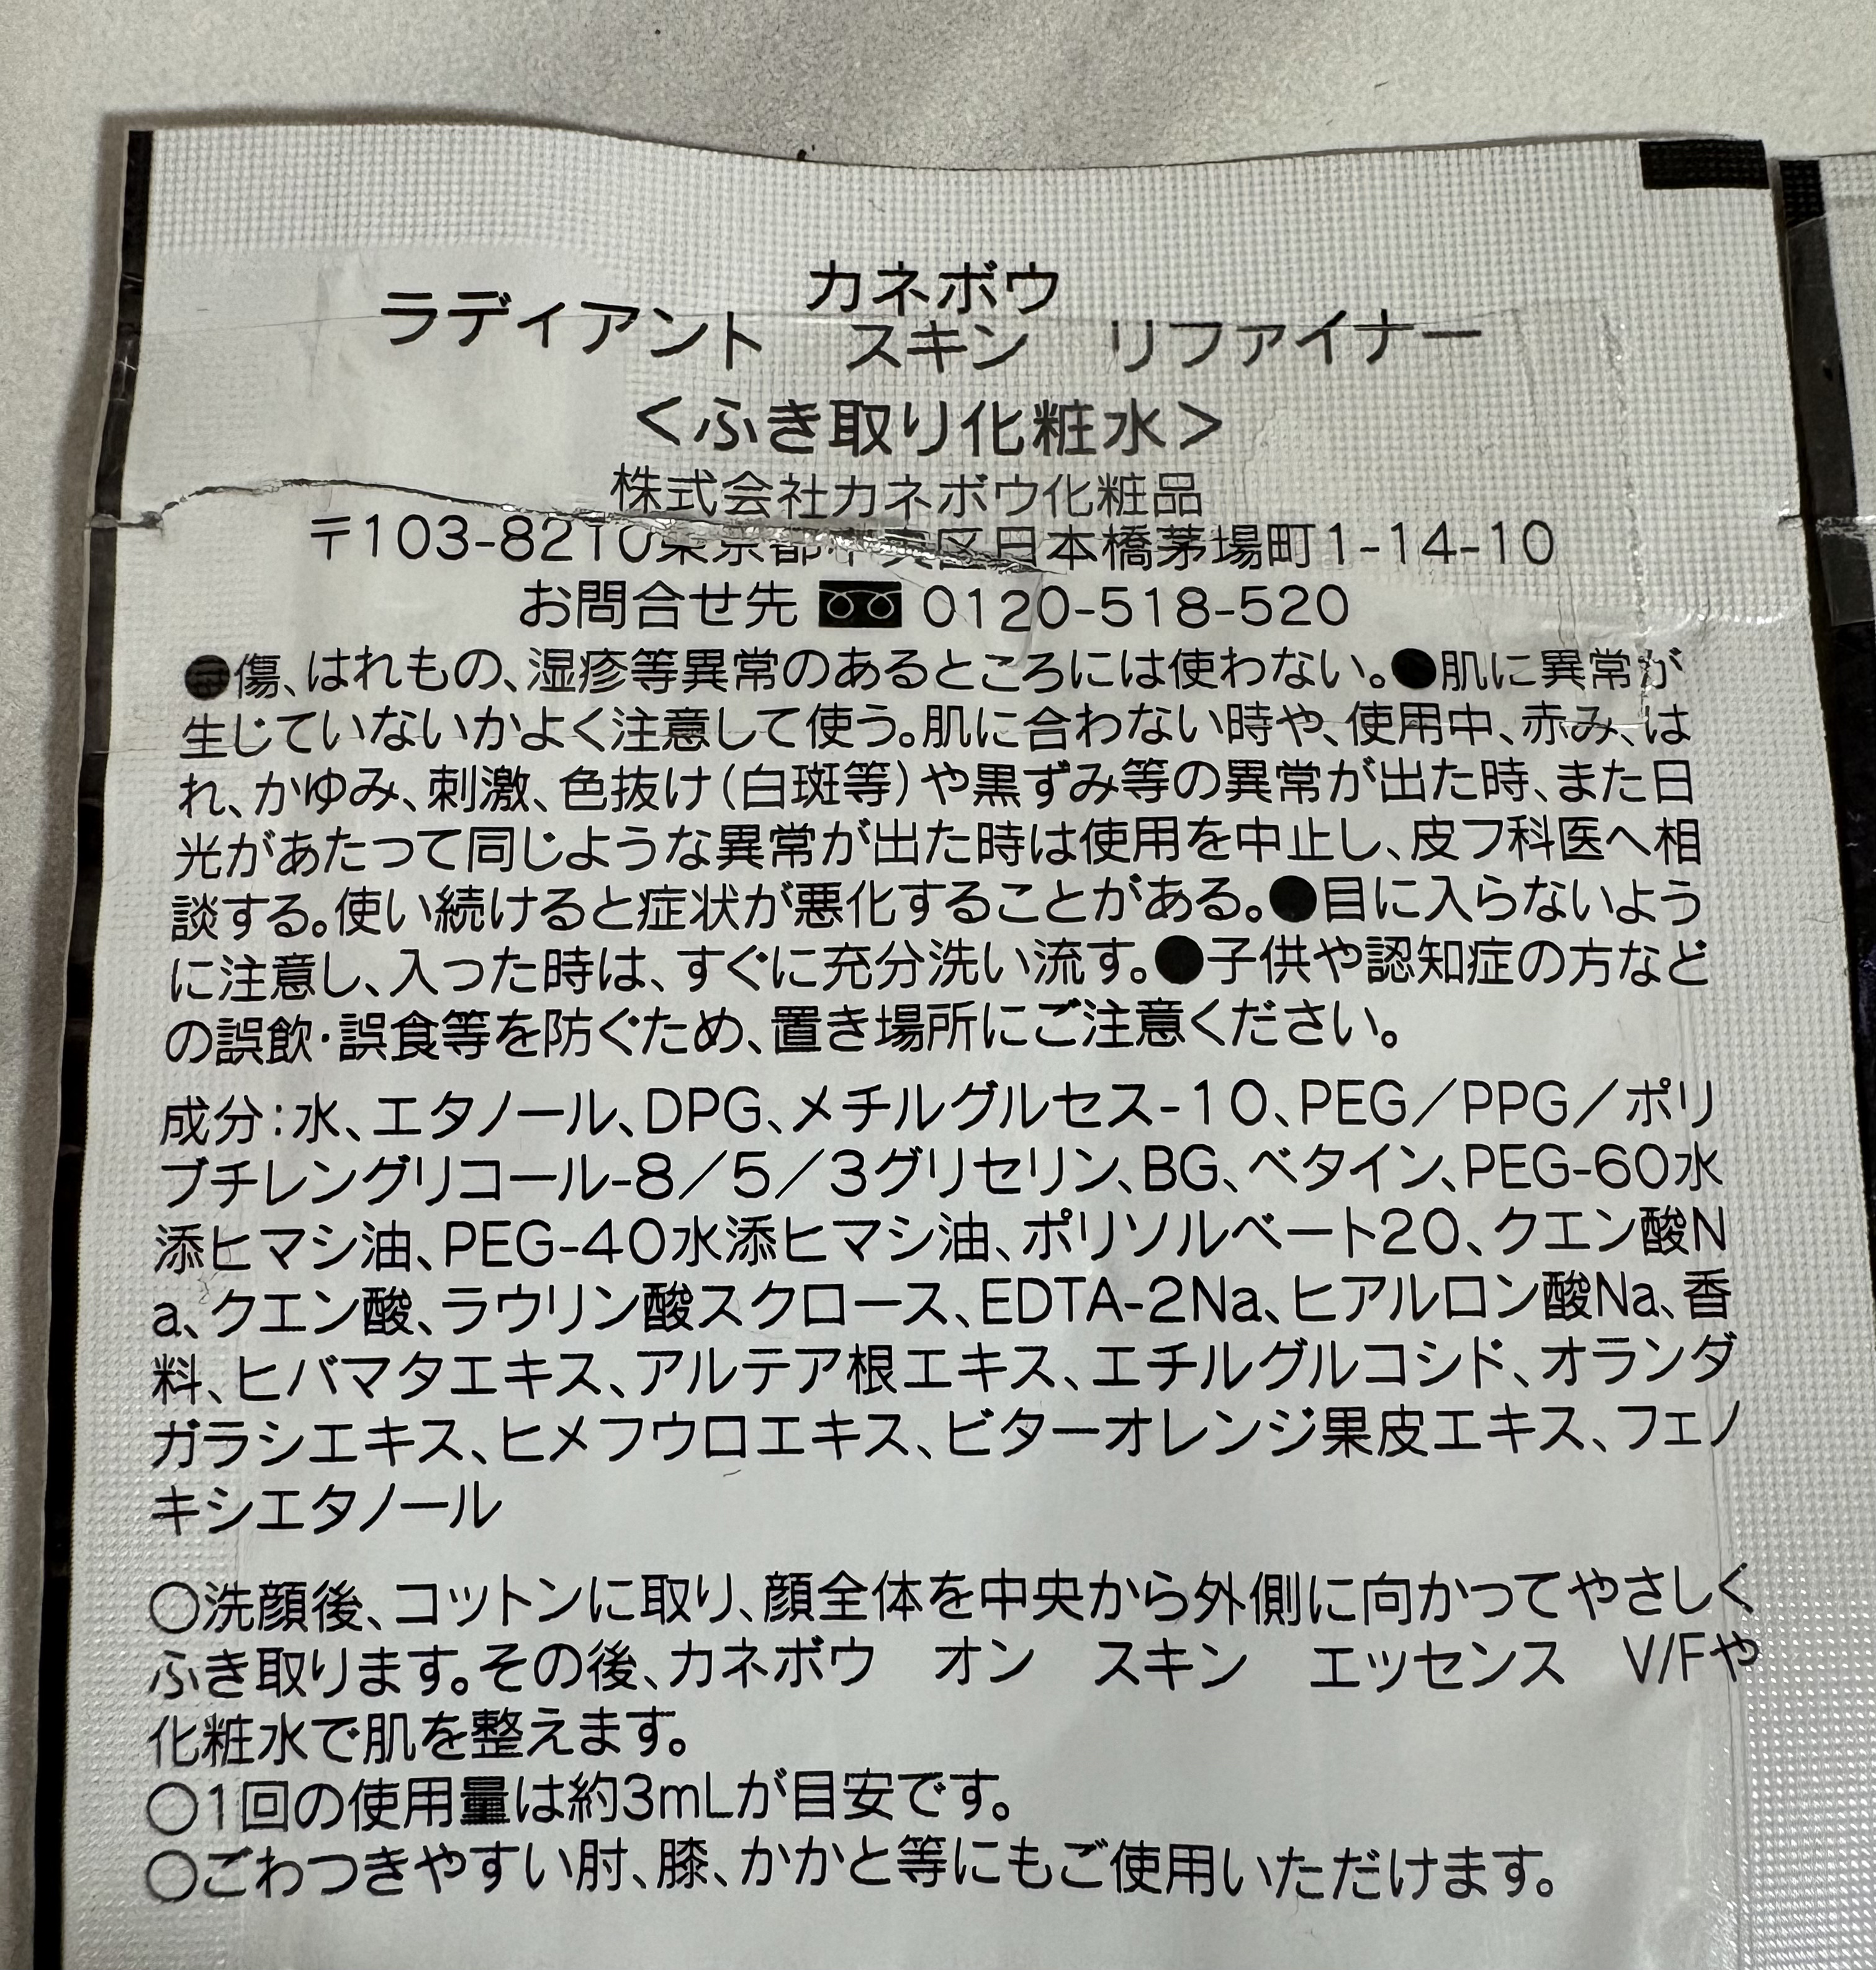 カネボウ
ラディアント　スキン　リファイナー
＜ふき取り化粧水＞
株式会社カネボウ化粧品
〒103-8210東京都中央区日本橋茅場町1-14-10
お問合せ先 0120-518-520
●傷、はれもの、湿疹等異常のあるところには使わない。●肌に異常が
生じていないかよく注意して使う。肌に合わない時や、使用中、赤み、は
れ、かゆみ、刺激、色抜け（白斑等）や黒ずみ等の異常が出た時、また日
光があたって同じような異常が出た時は使用を中止し、皮フ科医へ相
談する。使い続けると症状が悪化することがある。●目に入らないよう
に注意し、入った時は、すぐに充分洗い流す。●子供や認知症の方など
の誤飲・誤食等を防ぐため、置き場所にご注意ください。
成分：水、エタノール、DPG、メチルグルセス-10、PEG／PPG／ポリ
ブチレングリコール-8／5／3グリセリン、BG、ベタイン、PEG-60水
添ヒマシ油、PEG-40水添ヒマシ油、ポリソルベート20、クエン酸N
a、クエン酸、ラウリン酸スクロース、EDTA-2Na、ヒアルロン酸Na、香
料、ヒバマタエキス、アルテア根エキス、エチルグルコシド、オランダ
ガラシエキス、ヒメフウロエキス、ビターオレンジ果皮エキス、フェノ
キシエタノール
○洗顔後、コットンに取り、顔全体を中央から外側に向かってやさしく
ふき取ります。その後、カネボウ　オン　スキン　エッセンス　V/Fや
化粧水で肌を整えます。
○1回の使用量は約3mLが目安です。
○ごわつきやすい肘、膝、かかと等にもご使用いただけます。